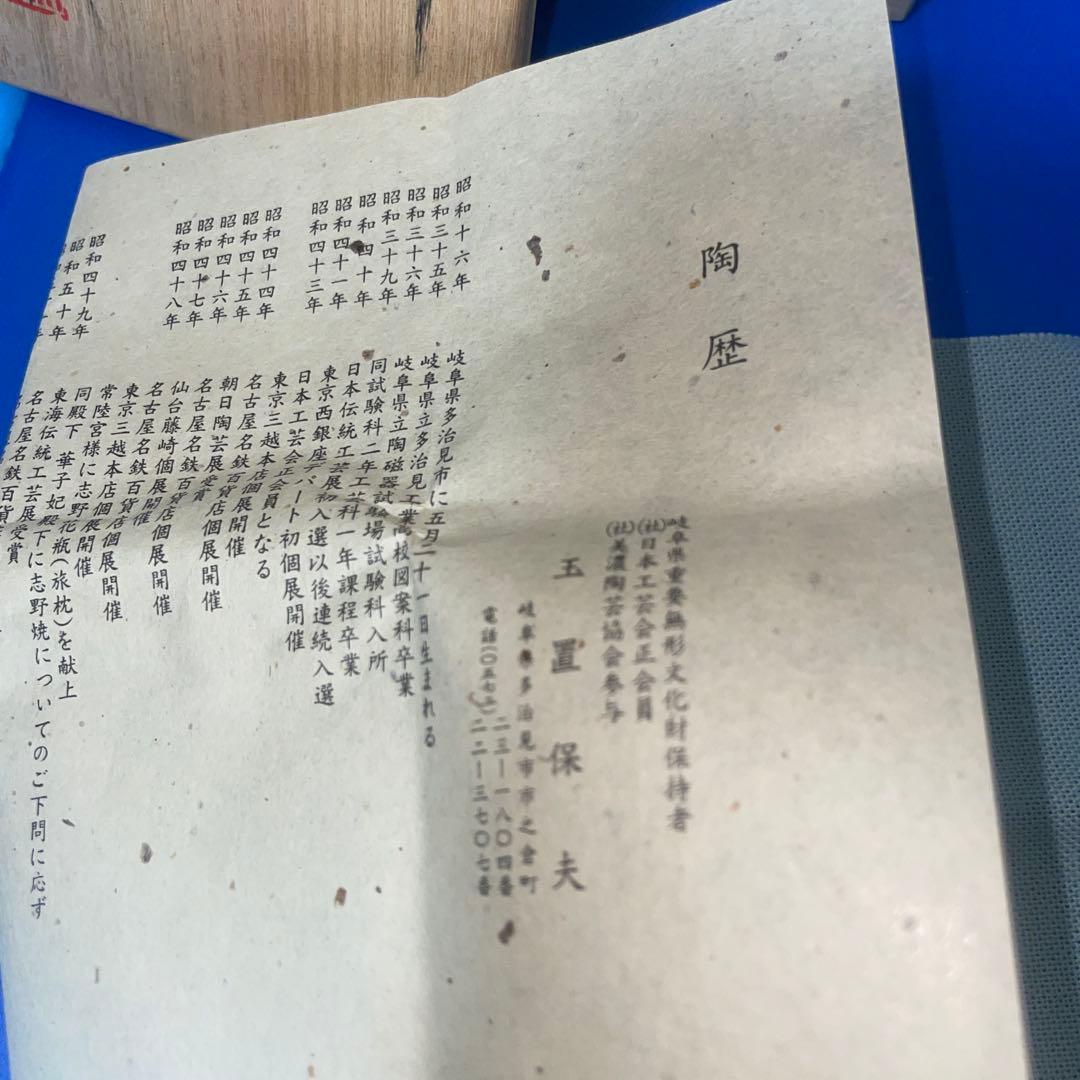 陶歴
岐阜県重要無形文化財保持者
(社)日本工芸会正会員
(社)美濃陶芸協会参与
玉置保夫
岐阜県多治見市市之倉町
二三ー一八〇四番
電話(〇五七二)二二ー三七〇七番
昭和十六年 岐阜県多治見市に五月二十一日生まれる
昭和三十五年 岐阜県立多治見工業高校図案科卒業
昭和三十六年 岐阜県立陶磁器試験場試験科入所
昭和三十九年 同試験科二年工芸科一年課程卒業
昭和四十年 日本伝統工芸展初入選以後連続入選
昭和四十一年 東京西銀座デパート初個展開催
昭和四十三年 日本工芸会正会員となる
東京三越本店個展開催
昭和四十四年 名古屋名鉄百貨店個展開催
昭和四十五年 朝日陶芸展受賞
昭和四十六年 名古屋名鉄百貨店個展開催
昭和四十七年 仙台藤崎個展開催
昭和四十八年 名古屋名鉄百貨店個展開催
東京三越本店個展開催
常陸宮様に志野花瓶(旅枕)を献上
同殿下 華子妃殿下に志野焼についてのご下問に応ず
昭和四十九年 東海伝統工芸展受賞
昭和五十年 名古屋名鉄百貨